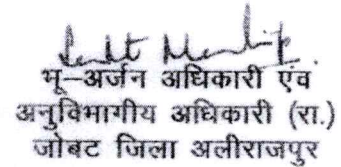 भू–अर्जन अधिकारी एवं
अनुविभागीय अधिकारी (रा.)
जोबट जिला अलीराजपुर